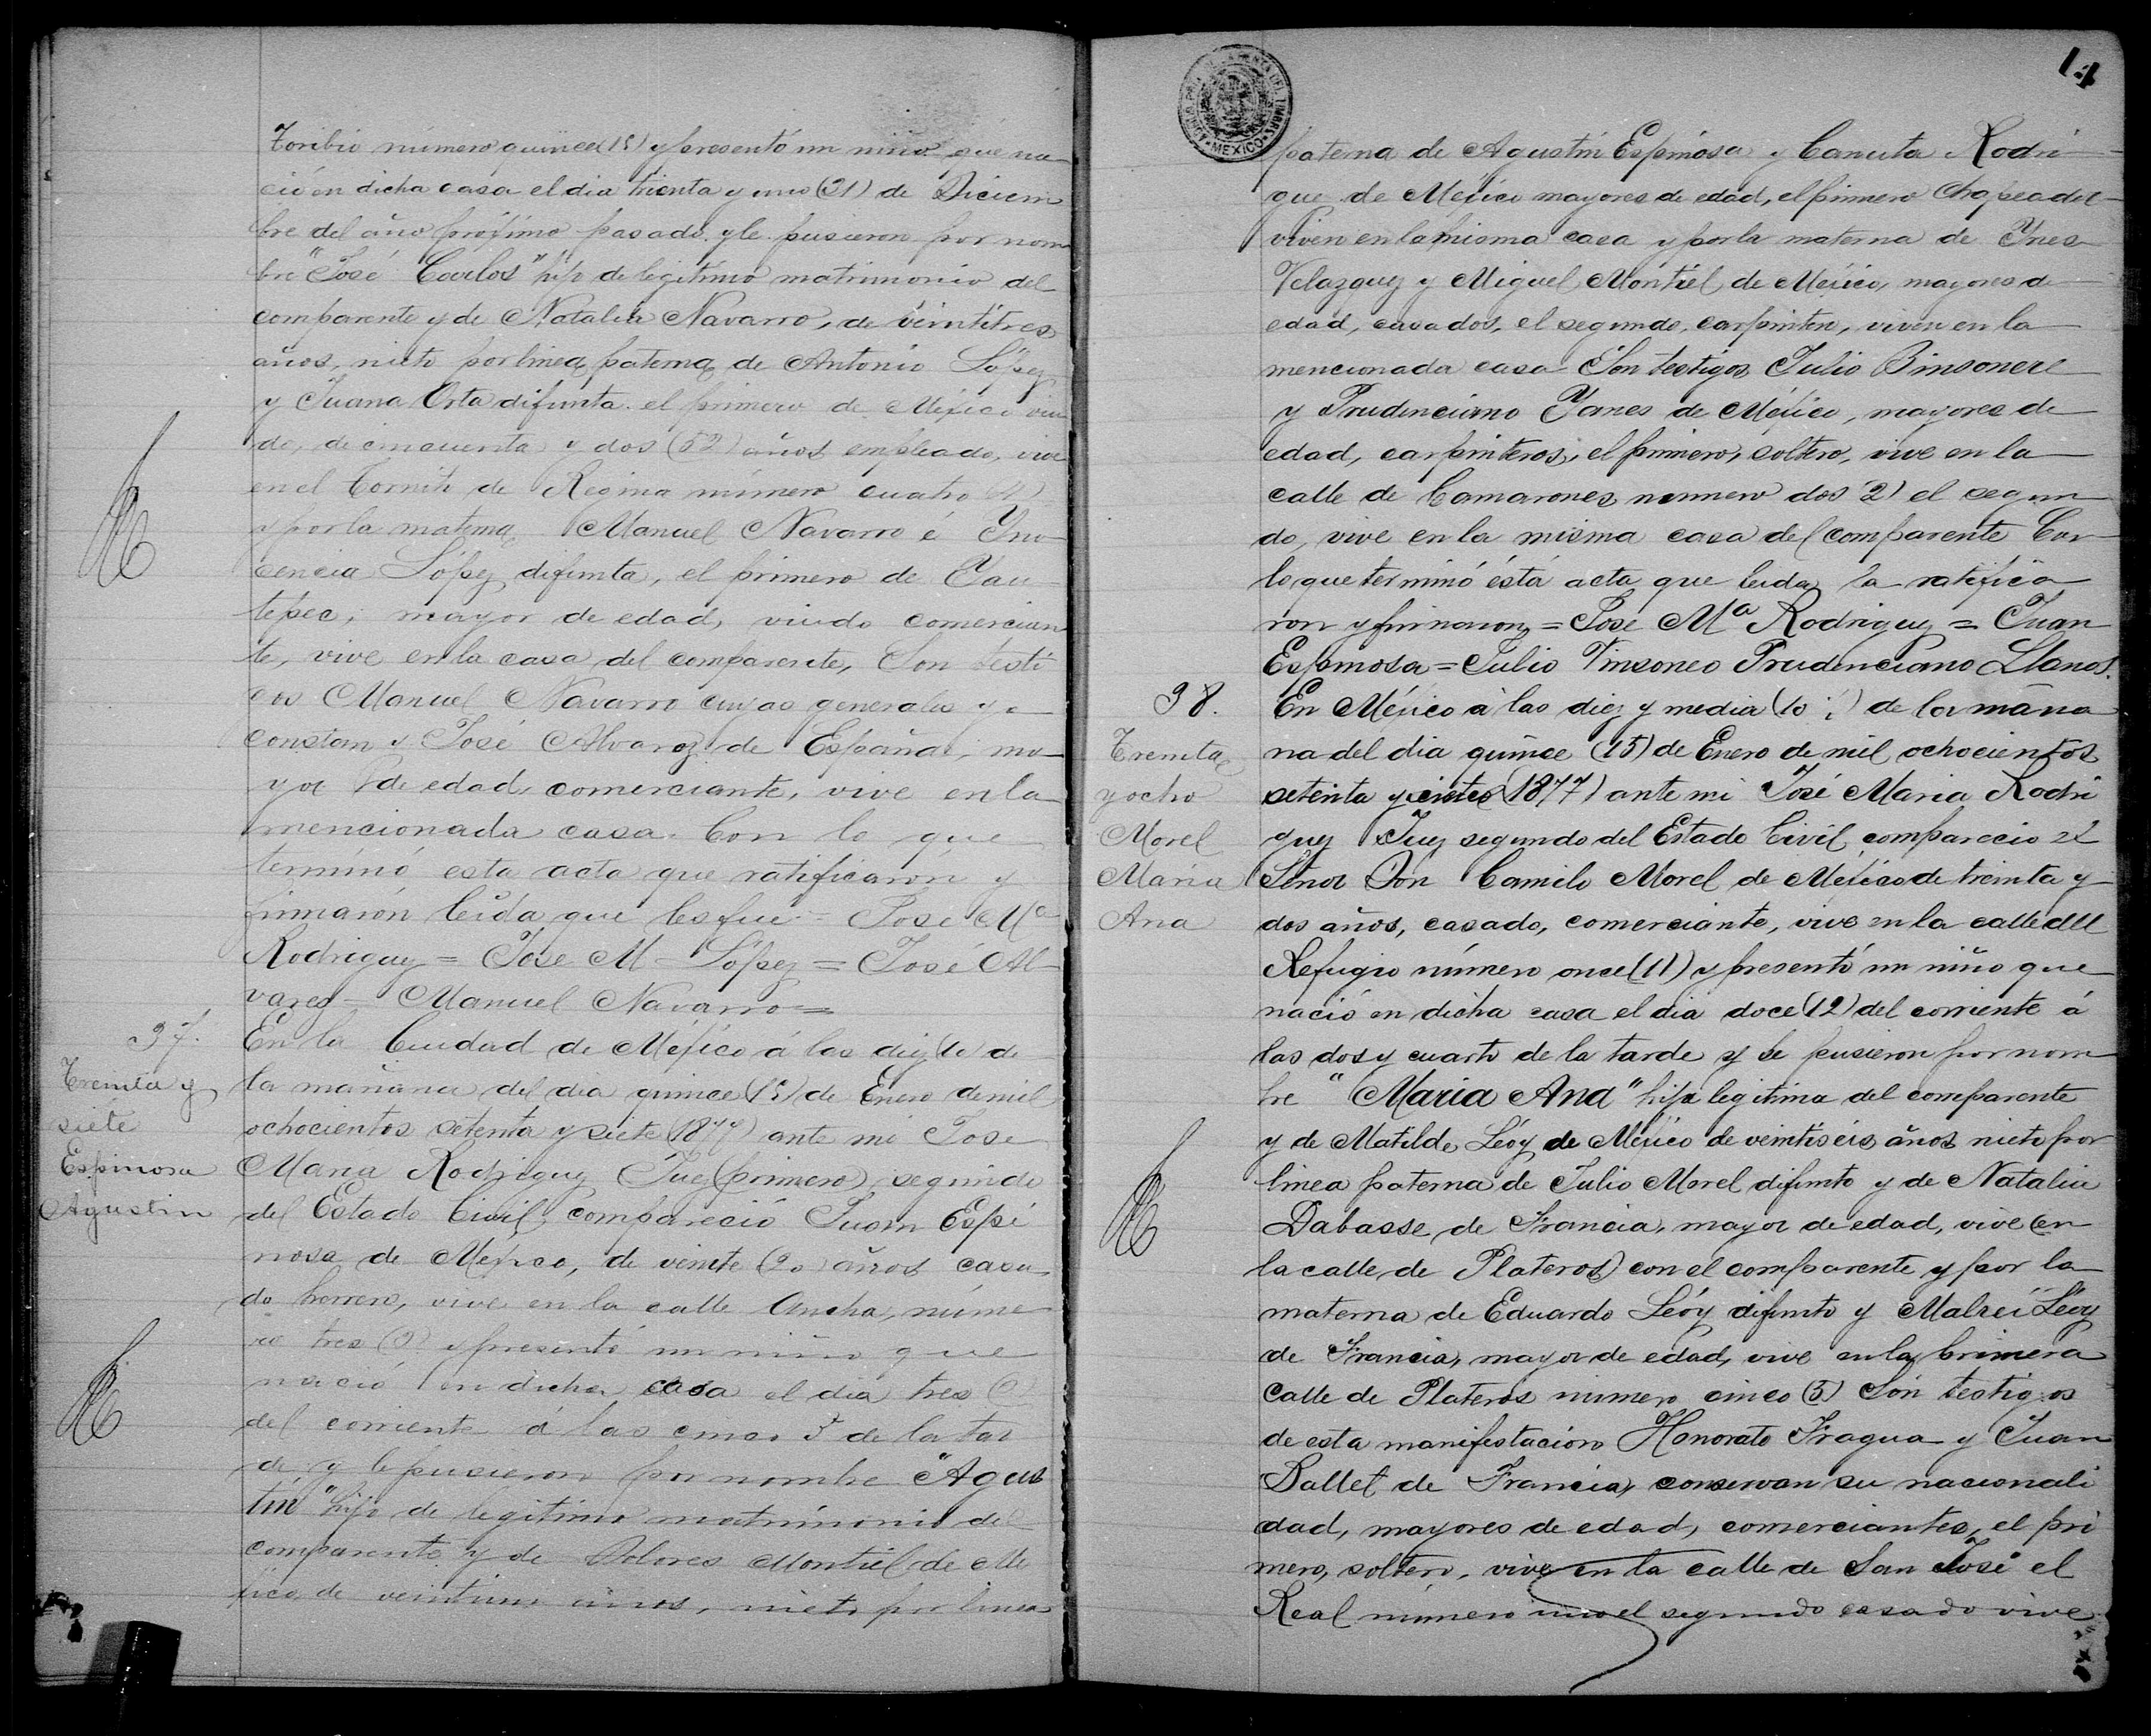 Toribio número quince (15) y presentó un niño que na
ció en dicha casa el dia trienta y uno (31) de Diciem
bre del año próximo pasado y le pusieron por nom
bre "José Carlos" hijo de legitimo matrimonio del
comparente y de Natalia Navarro, de veintitres
años, nieto por linea paterna de Antonio López
y Juana Orta difunta. el primero de México viu
do, de cincuenta y dos (52) años empleado, vive
en el Tornito de Regina número cuatro (4)
y por la materna Manuel Navarro é Yno
cencia López difunta, el primero de Yau
tepec, mayor de edad, viudo comercian
te, vive en la casa del comparente, Son testi
gos Manuel Navarro cuyas generales ya
constan y José Alvarez de España, ma
yor de edad, comerciante, vive en la
mencionada casa. Con lo que
terminó esta acta que ratificarón y
firmarón leida que les fué = José Ma
Rodriguez = Jose M López = José Al
varez = Manuel Navarro =
37.
Treinta y
siete
Espinosa
Agustin
En la Ciudad de México á las diez (10) de
la mañana del dia quince (15) de Enero de mil
ochocientos setenta y siete (1877) ante mi Jose
Maria Rodriguez Juez (primero) segundo
del Estado Civil, compareció Juan Espi
nosa de México, de veinte (20) años casa
do herrero, vive en la calle Ancha, núme
ro tres (3) y presentó un niño que
nació en dicha casa el dia tres (3)
del corriente á las cinco 5 de la tar
de y le pusieron por nombre "Agus
tin" hijo de legitimo matrimonio del
comparente y de Dolores Montiel de Mé
xico, de veintiun años, nieto por linea
14
MEXICO
paterna de Agustín Espinosa y Canuta Rodri
guez de México mayores de edad, el primero Chapeador
viven en la misma casa y por la materna de Ynes
Velazquez y Miguel Montiel de México, mayores de
edad, casados, el segundo, carpintero, viven en la
mencionada casa Son testigos Julio Pinsonere
y Prudenciano Yanes de México, mayores de
edad, carpinteros, el primero, soltero, vive en la
calle de Camarones numero dos (2) el segun
do, vive en la misma casa del comparente Con
lo que terminó ésta acta que leida la ratifica
ron y firmaron = José Ma Rodriguez = Juan
Espinosa = Julio Pinsoneo Prudenciano Llanos.
38.
Treinta
y ocho
Morel
Maria
Ana
En México á las diez y media (10 ½) de la maña
na del dia quince (15) de Enero de mil ochocientos
setenta y siete (1877) ante mi José Maria Rodri
guez Juez segundo del Estado Civil, comparecio el
Señor Don Camilo Morel de México de treinta y
dos años, casado, comerciante, vive en la calle del
Refugio número once (11) y presentó un niño que
nació en dicha casa el dia doce (12) del corriente á
las dos y cuarto de la tarde y le pusieron por nom
bre "Maria Ana" hija legitima del comparente
y de Matilde Léoy de México de veintiseis años nieto por
linea paterna de Julio Morel difunto y de Natalia
Dabasse de Francia, mayor de edad, vive (en
la calle de Plateros) con el comparente y por la
materna de Eduardo Léoy difunto y Malrei Léoy
de Francia, mayor de edad, vive en la primera
Calle de Plateros número cinco (5) Són testigos
de esta manifestación Honorato Fragua y Juan
Ballet de Francia, conservan su nacionali
dad, mayores de edad, comerciantes, el pri
mero, soltero, vive en la calle de San José el
Real número uno el segundo casado vive